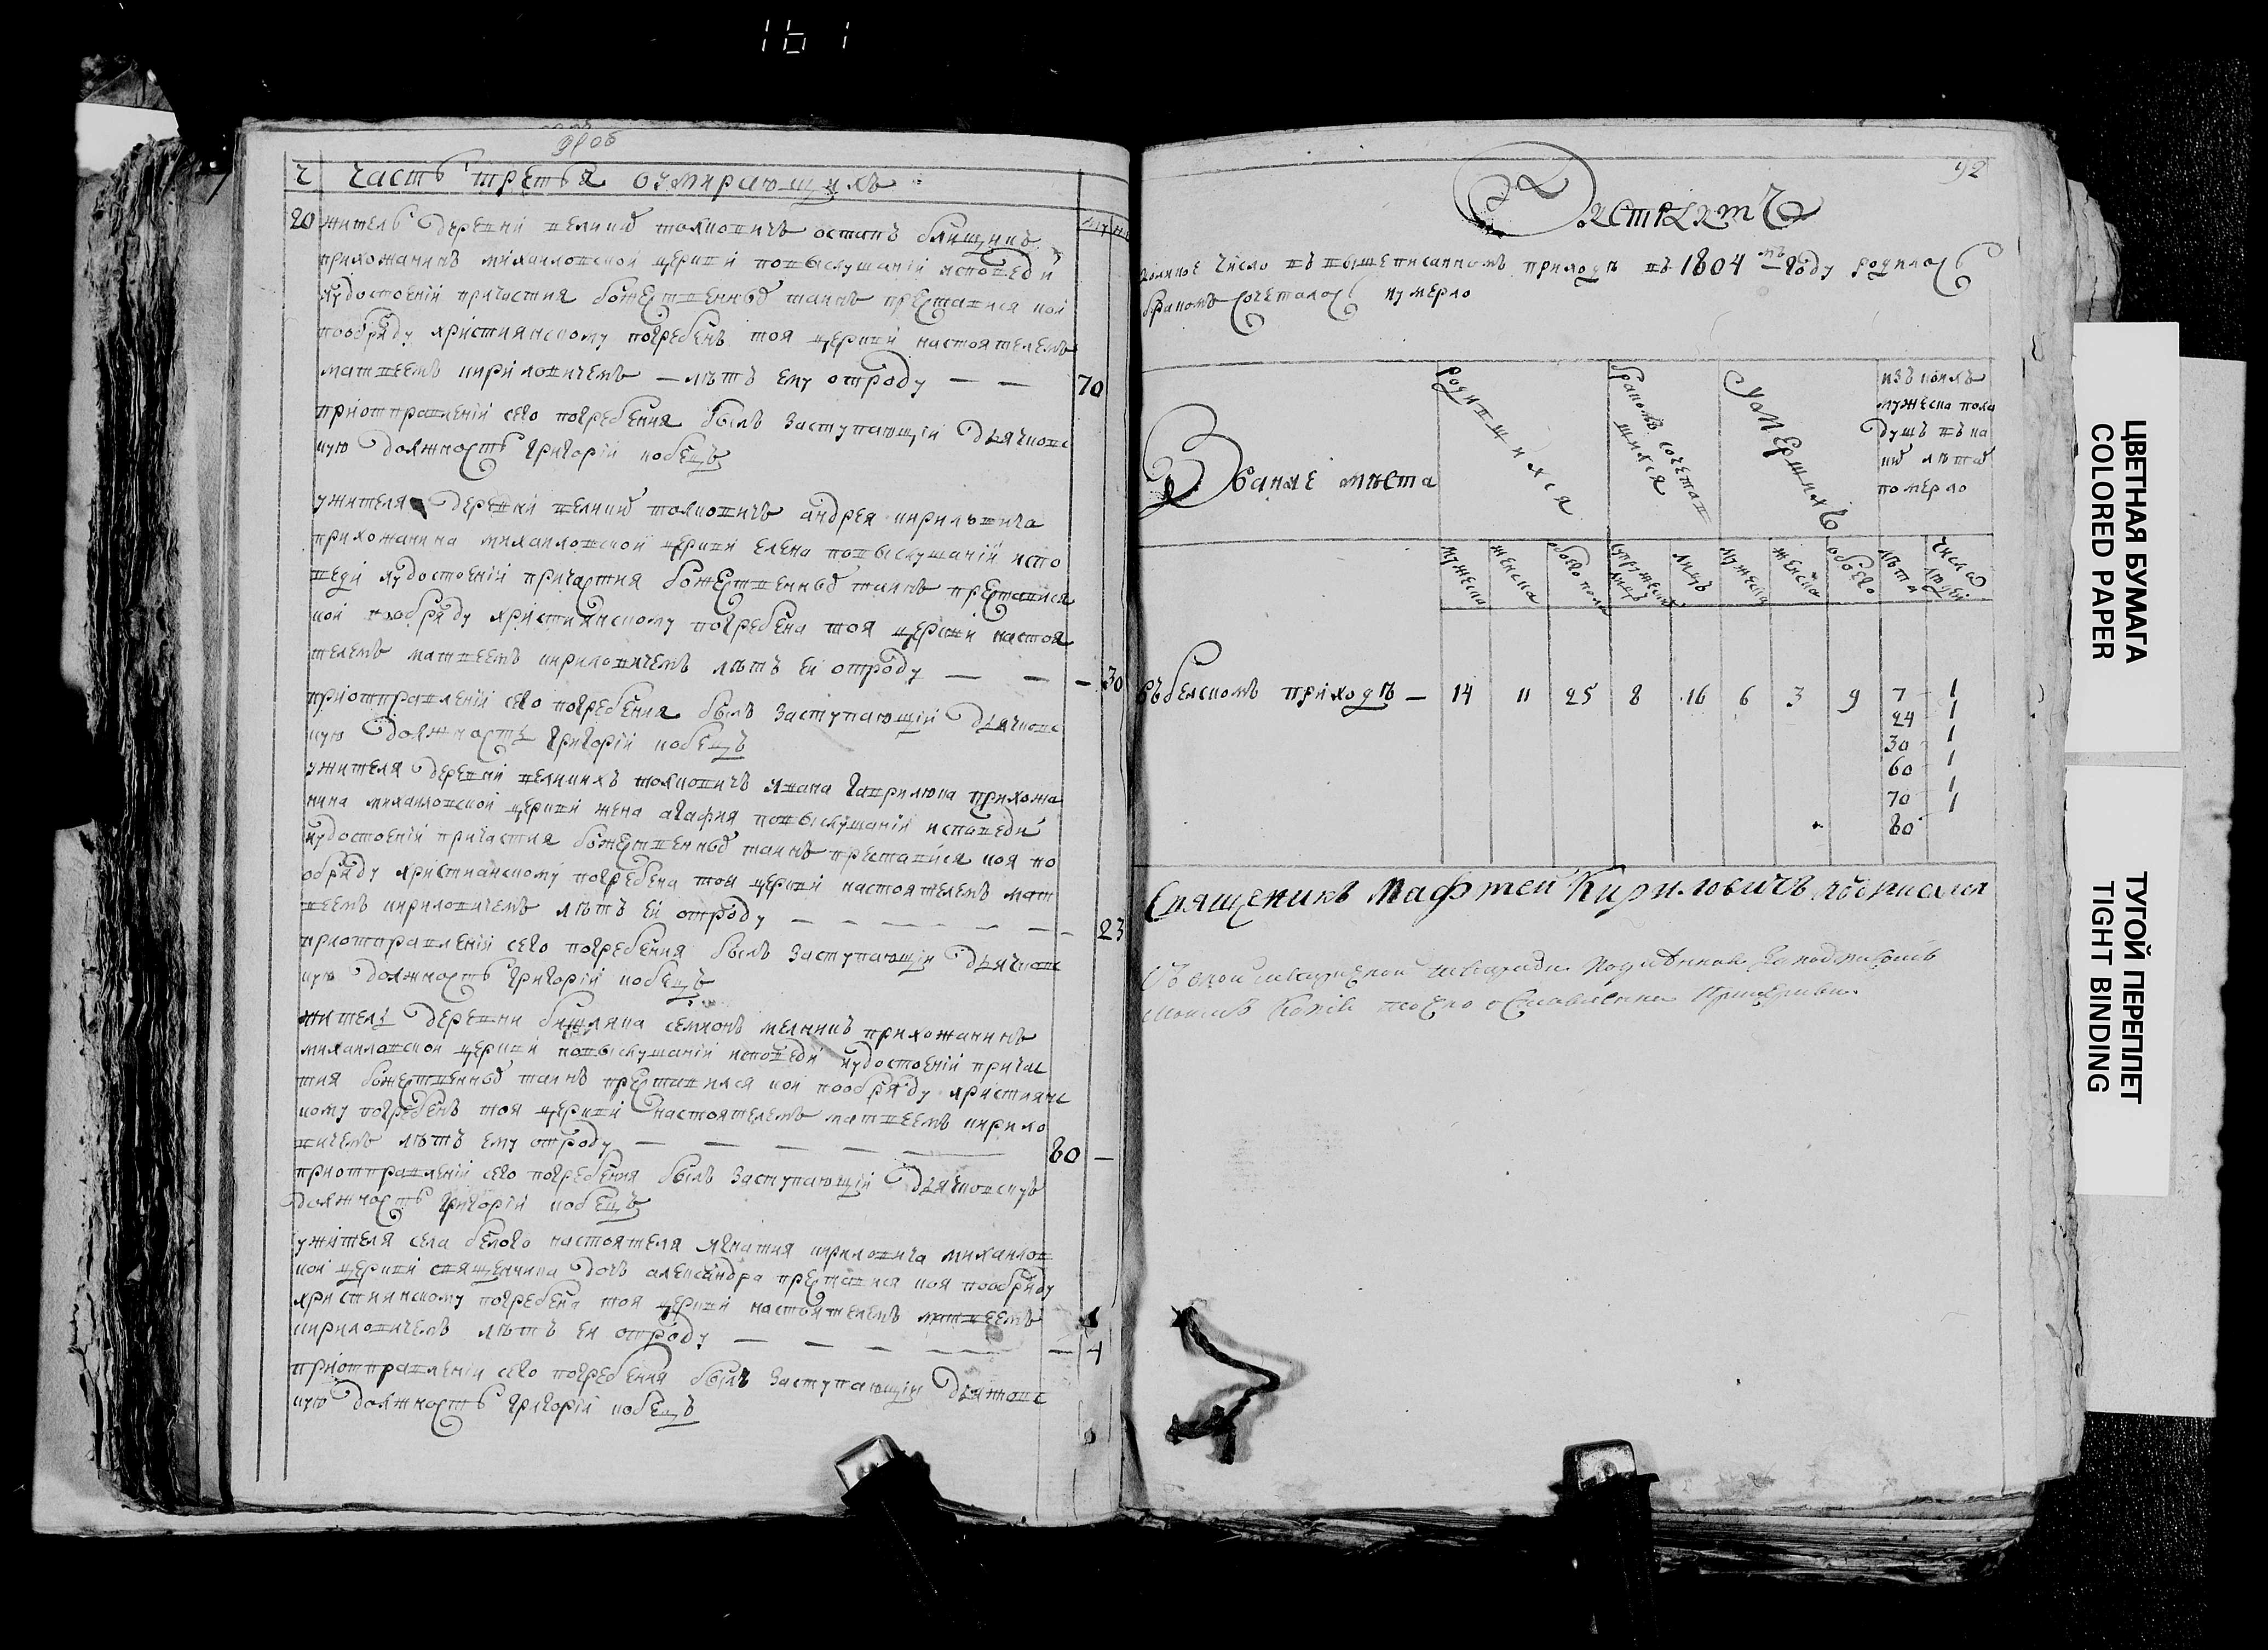 161
ч Часть третья оумирающихъ
20 житель деревни великихъ толковичъ остапъ блищикъ
прихожанинъ михаиловской церкви повыслушаній исповеди
иудостоеній причастия божественныхъ таинъ преставися кой
пообряду християнскому погребенъ тоя церкви настоятелемъ
матвеемъ кириловичемъ – лѣтъ ему отроду – – 70
приотправленій сего погребения былъ заступающій дьячковс
кую должность григорій кобецъ
ужителя деревни великихъ толковичъ андрея кирильвича
прихожанина михаиловской церкви елена повыслушаній испо
веди иудостоеній причастия божественныхъ таинъ преставися
кой пообряду християнскому погребена тоя церкви настоя
телемъ матвеемъ кириловичемъ лѣтъ ей отроду – – – 30
приотправленій сего погребения былъ заступающій дьячковс
кую должность григорій кобецъ
ужителя деревни великихъ толковичъ ивана гаврилюка прихожа
нина михаиловской церкви жена агафия повыслушаній исповеди
иудостоеній причастия божественныхъ таинъ преставися коя по
обряду християнскому погребена тоя церкви настоятелемъ мат
веемъ кириловичемъ лѣтъ ей отроду – – – – – – 23
приотправленій сего погребения былъ заступающій дьячковс
кую должность григорій кобецъ
житель деревни семионъ мелникъ прихожанинъ
михаиловской церкви повыслушаній исповеди иудостоеній причас
тия божественныхъ таинъ преставился кой пообряду християнс
кому погребенъ тоя церкви настоятелемъ матвеемъ кирило
вичемъ лѣтъ ему отроду – – – – 80 –
приотправленій сего погребения былъ заступающій дьячковскую
должность григорій кобецъ
ужителя села белого настоятеля игнатия кириловича михаилов
кой церкви священика дочь александра преставися коя пообряду
християнскому погребена тоя церкви настоятелемъ матвеемъ
кириловичемъ лѣтъ ей отроду – – – – – 4
приотправленій сего погребения былъ заступающій дьячковс
кую должность григорій кобецъ
92
Экстрактъ
число въ вышеписанномъ приходѣ въ 1804 мъ году родилось
бракомъ сочеталось иумерло
Звание мѣста
родившихся
бракомъ сочетавшихся
Умершихъ
изъ коихъ
мужеска пола
душъ въ ка
кихъ лѣтах
померло
мужеска женска обоего пола супружествъ лицъ мужеска женска обоего лѣта числа людей
въбелскомъ приходѣ – 14 11 25 8 16 6 3 9 7 1
24 1
30 1
60 1
70 1
80 1
Священикъ Мафтей Кириловичъ
ЦВЕТНАЯ БУМАГА
COLORED PAPER
ТУГОЙ ПЕРЕПЛЕТ
TIGHT BINDING